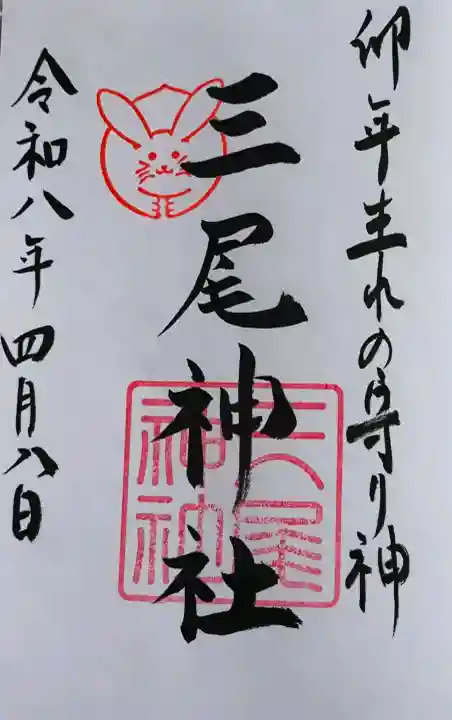 卯年生れの守り神
三尾神社
令和八年四月八日